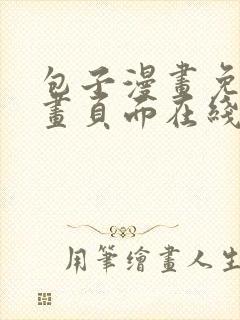 包子漫畫免
畫頁面在綫
用筆繪畫人生